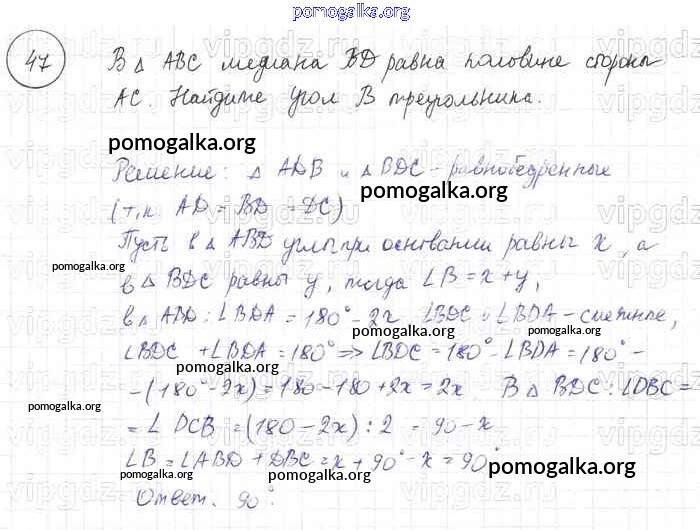 pomogalka.org
47 В △ ABC медиана BD равна половине стороны
AC. Найдите угол B треугольника.
pomogalka.org
Решение: △ ADB и △ BDC – равнобедренные
pomogalka.org
(т.к. AD = BD = DC)
Пусть в △ ABD углы при основании равны x, а
pomogalka.org
в △ BDC равны y, тогда ∠B = x + y,
в △ ABD: ∠BDA = 180° - 2x ∠BDC и ∠BDA – смежные,
pomogalka.org pomogalka.org
∠BDC + ∠BDA = 180° => ∠BDC = 180° - ∠BDA = 180° -
- (180° - 2x) = 180 - 180 + 2x = 2x. В △ BDC: ∠DBC =
pomogalka.org pomogalka.org
= ∠ DCB = (180 - 2x) : 2 = 90 - x
∠B = ∠ABD + DBC = x + 90° - x = 90°
pomogalka.org pomogalka.org
Ответ. 90°.